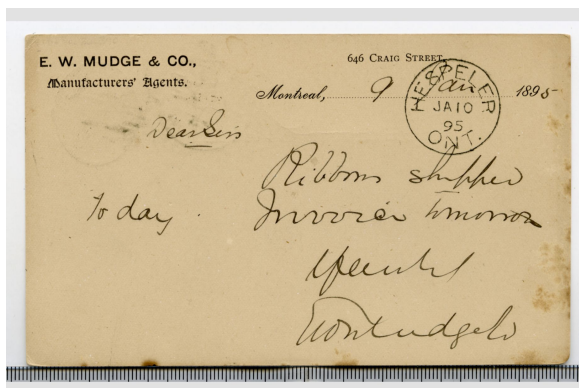 E. W. MUDGE & CO.,
Manufacturers' Agents.
646 CRAIG STREET,
Montreal, 9 Jan 1895
HESPELER
JA 10
95
ONT.
Dear Sirs
Ribbons shipped
to day. Invoice tomorrow